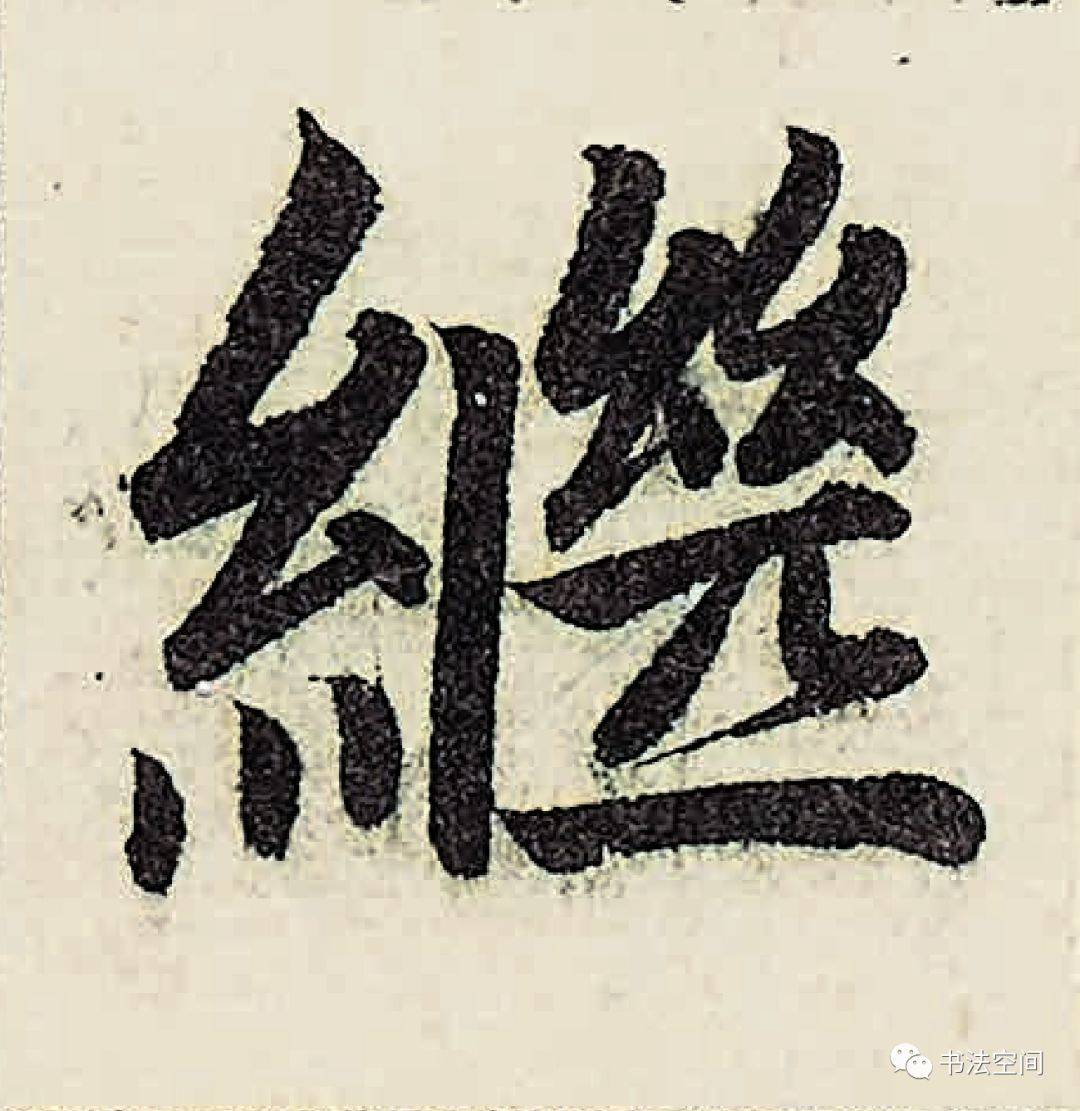 繼
书法空间